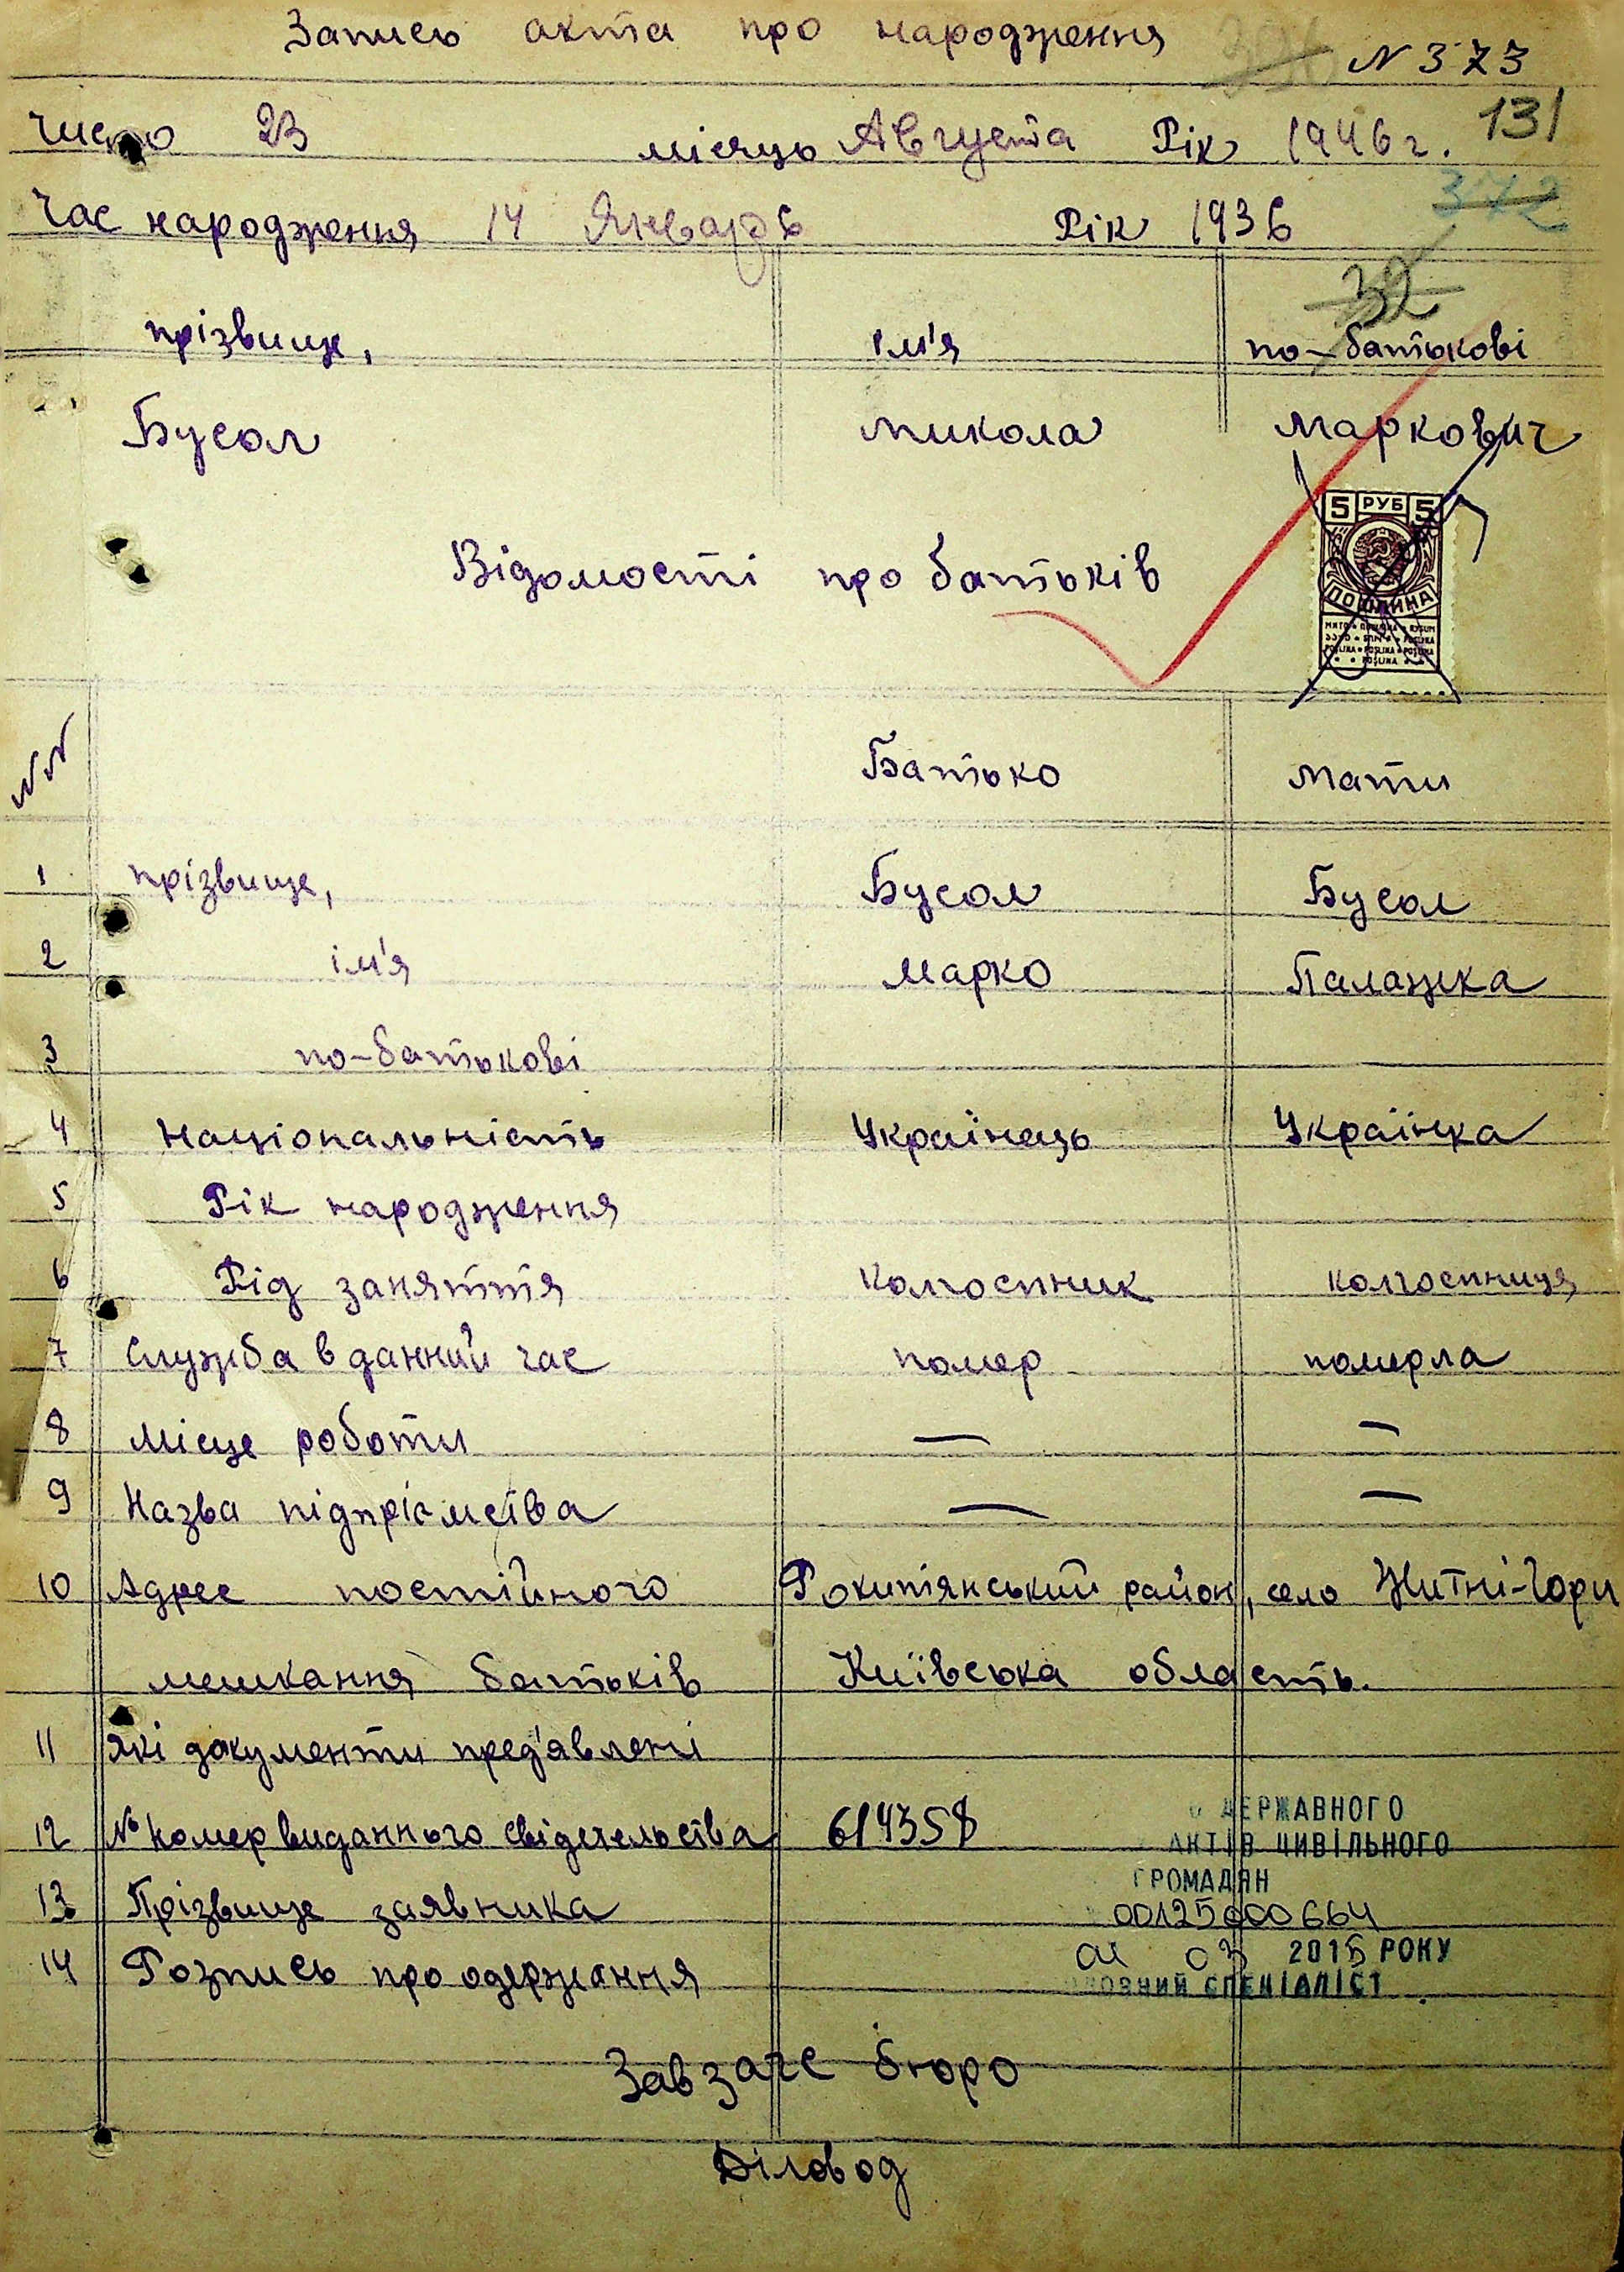 Запись акта про народження
N 373
131
Число 23 місяць Августа Рік 1946 г.
372
Час народження 14 Январь Рік 1936
32
прізвище, ім'я по-батькові
Бусол Микола Маркович
5 РУБ 5
ПОШЛИНА
Відомості про батьків
NN Батько Мати
1 прізвище, Бусол Бусол
2 ім'я Марко Палажка
3 по-батькові
4 Національність Українець Українка
5 Рік народження
6 Рід заняття Колгоспник колгоспниця
7 Служба в данний час помер померла
8 Місце роботи — —
9 Назва підпріємства — —
10 Адрес постійного Рокитянський район, село Житні-Гори
мешкання батьків Київська область.
11 Які документи пред'явлені
12 № номер виданного свідетельства 614358
ДЕРЖАВНОГО
АКТІВ ЦИВІЛЬНОГО
ГРОМАДЯН
13 Прізвище заявника 00125000664
03 2015 РОКУ
14 Розпись про одержання
СПЕЦІАЛІСТ
Завзагс бюро
Діловод